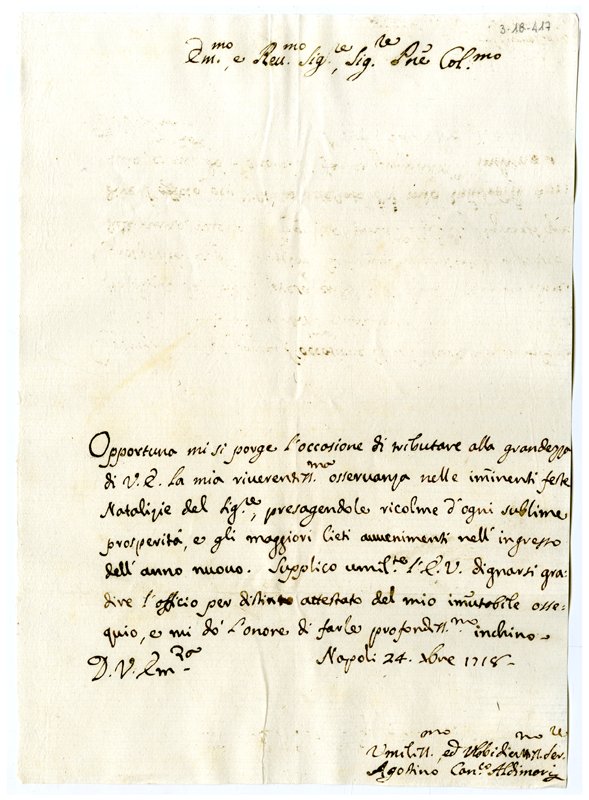 3-18-417
Em.mo, e Reu.mo Sig.re, Sig.re Pne Col.mo
Opportuna mi si porge l'occasione di tributare alla grandezza
di V.E. la mia riverentiss.ma osservanza nelle im̄inenti feste
Natalizie del Sig.re, presagendole ricolme d'ogni sublime
prosperità, e gli maggiori lieti avvenimenti nell'ingresso
dell'anno nuovo. Supplico umil.te l'E.V. dignarsi gra:
dire l'officio per distinto attestato del mio im̄utobile osse=
quio, e mi dò l'onore di farle profondiss.mo inchino
D.V.Em.za Napoli 24. Xbre 1718
Umiliss.mo, ed Vbbidientiss.mo ser.re
Agostino Can.co Aldimari